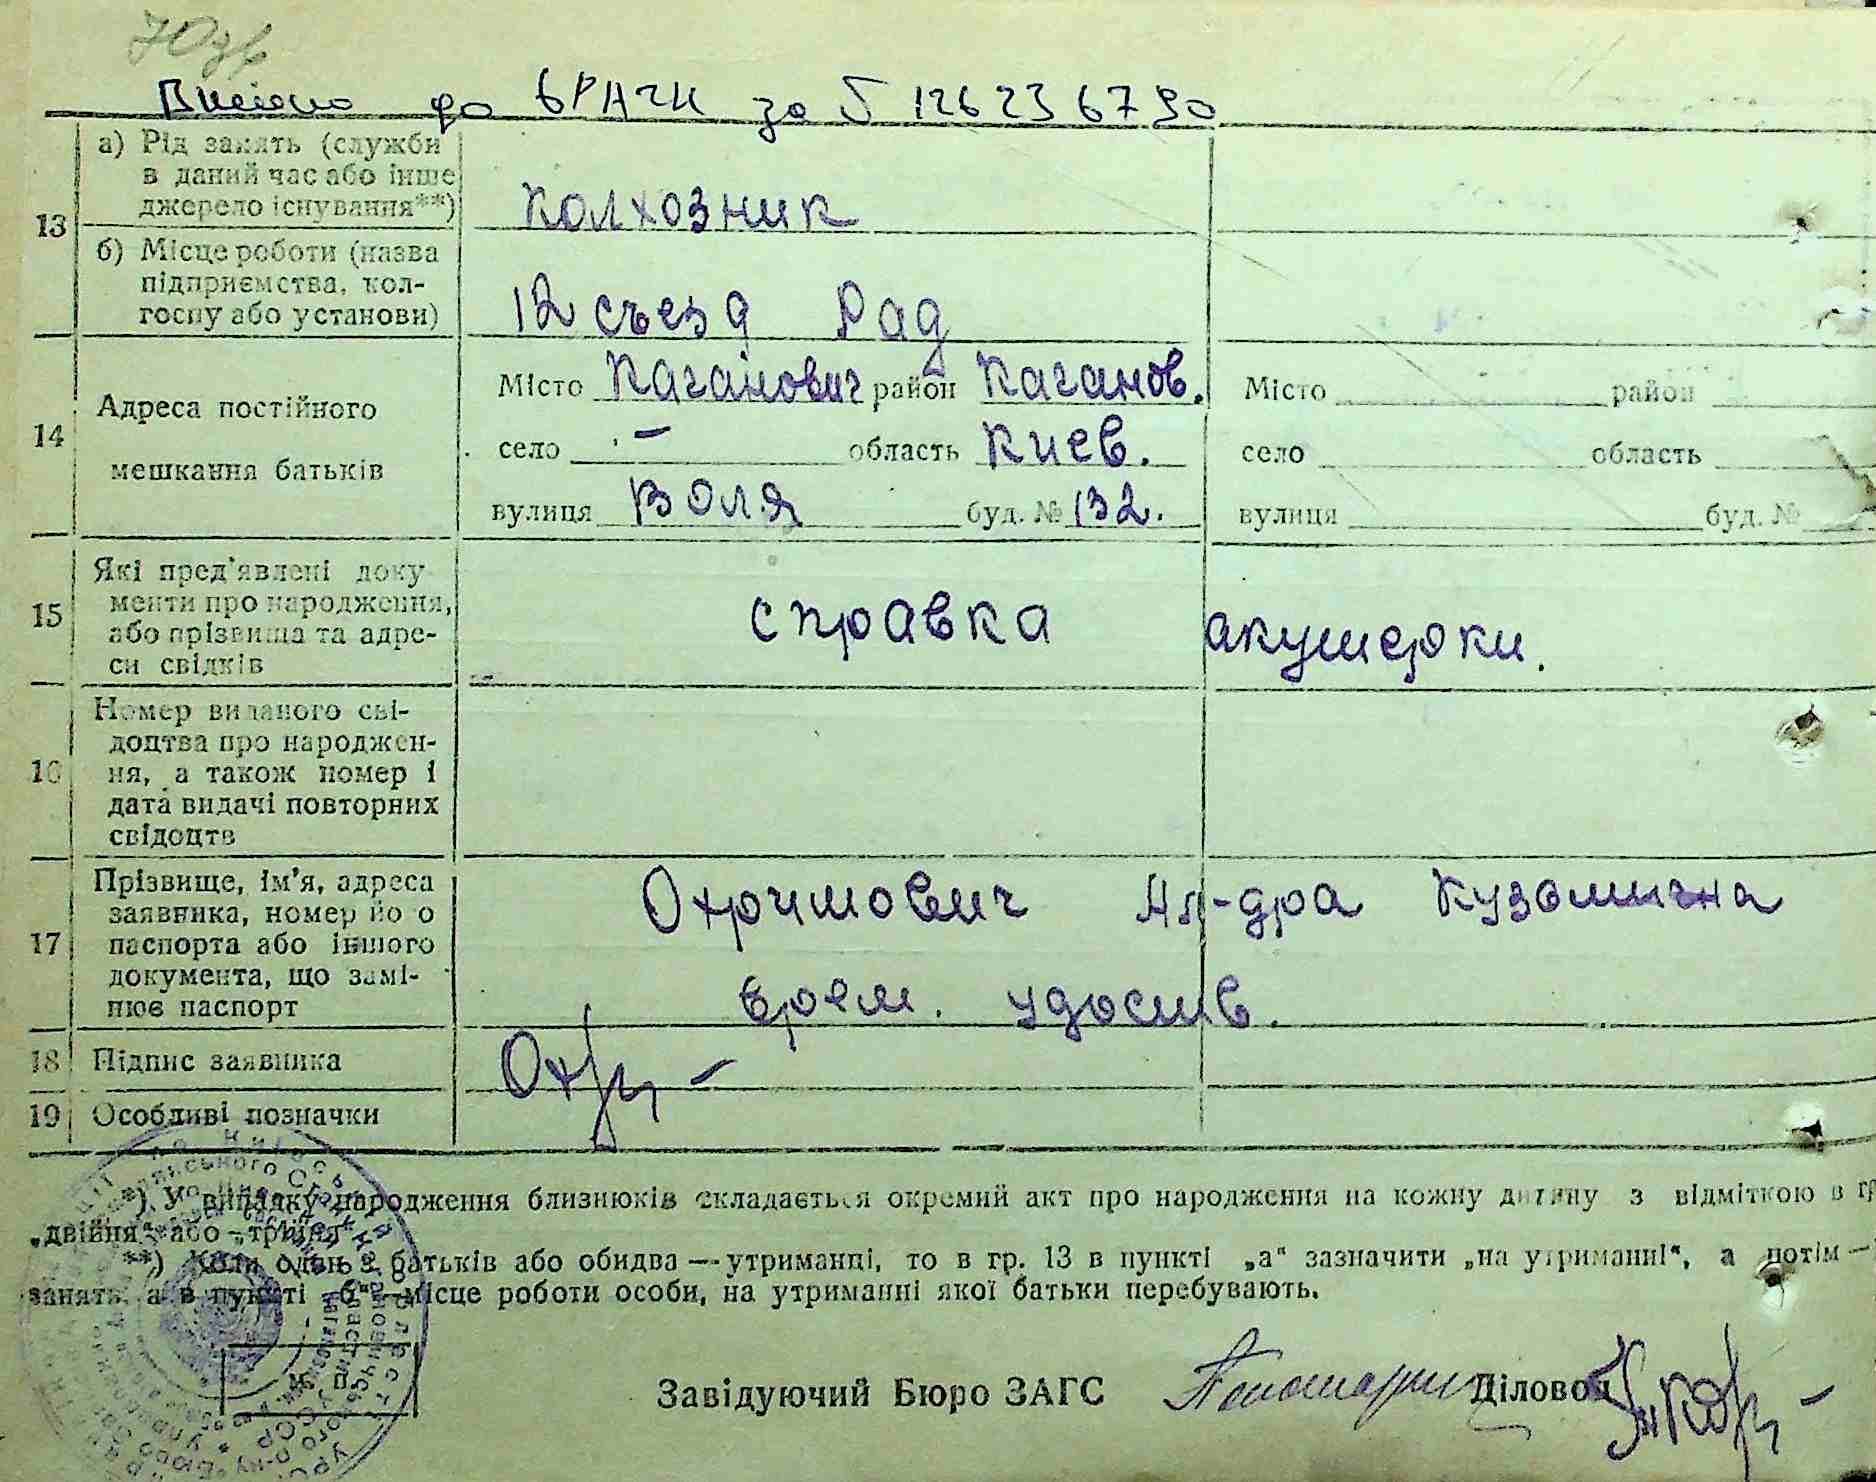 70зв
Внесено до ВРАЧИ за № 126236790
13 а) Рід занять (служби в даний час або інше джерело існування**)
колхозник
б) Місце роботи (назва підприємства, колгоспу або установи)
12 съезд Рад
14 Адреса постійного мешкання батьків
Місто Каганович район Каганов. Місто район
село – область Киев. село область
вулиця Воля буд. № 132. вулиця буд. №
15 Які пред'явлені документи про народження, або прізвища та адреси свідків
справка акушерки.
16 Номер виданого свідоцтва про народження, а також номер і дата видачі повторних свідоцтв
17 Прізвище, ім'я, адреса заявника, номер його паспорта або іншого документа, що замінює паспорт
Охримович Ал-дра Кузьминична
врем. удостов.
18 Підпис заявника
19 Особливі позначки
*) У випадку народження близнюків складається окремий акт про народження на кожну дитину з відміткою в гр
„двійня" або „трійня"
**) Коли один з батьків або обидва — утриманці, то в гр. 13 в пункті „а" зазначити „на утриманні", а потім —
занять, а в пункті „б" — місце роботи особи, на утриманні якої батьки перебувають.
М. П.
Завідуючий Бюро ЗАГС Діловод